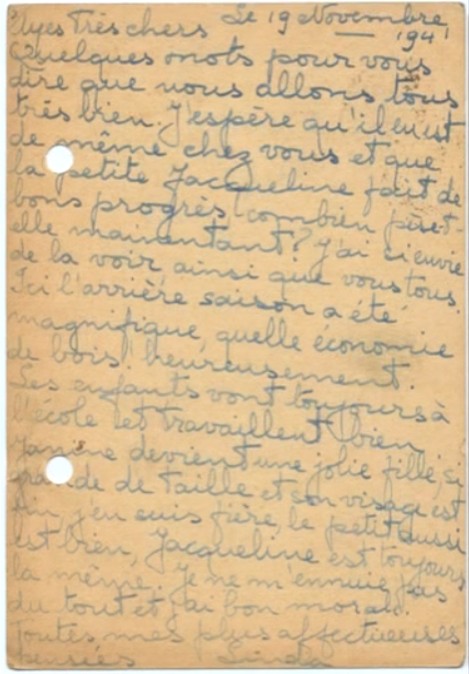 Mes Très chers Le 19 Novembre
1941
Quelques mots pour vous
dire que nous allons tous
très bien. J'espère qu'il en est
de même chez vous et que
la petite Jacqueline fait de
bons progrès, combien pèse t-
elle maintenant? J'ai si envie
de la voir ainsi que vous tous.
Ici l'arrière saison a été
magnifique, quelle économie
de bois! heureusement.
Les enfants vont toujours à
l'école et travaillent bien,
Janine devient une jolie fille, si
grande de taille et son visage est
fin, j'en suis fière, le petit aussi
est bien, Jacqueline est toujours
la même. Je ne m'ennuie pas
du tout et j'ai bon moral.
Toutes mes plus affectueuses
pensées Linda